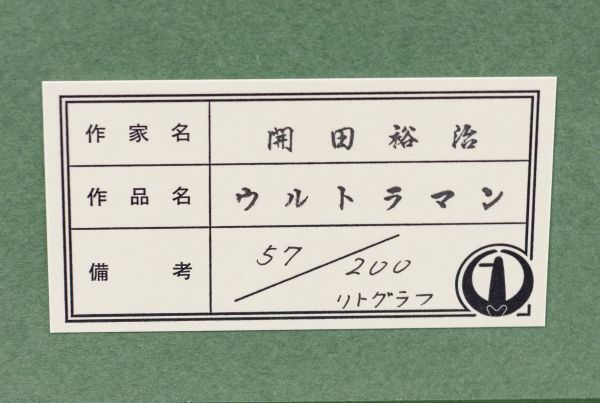 作家名 開田裕治
作品名 ウルトラマン
備考 57/200
リトグラフ